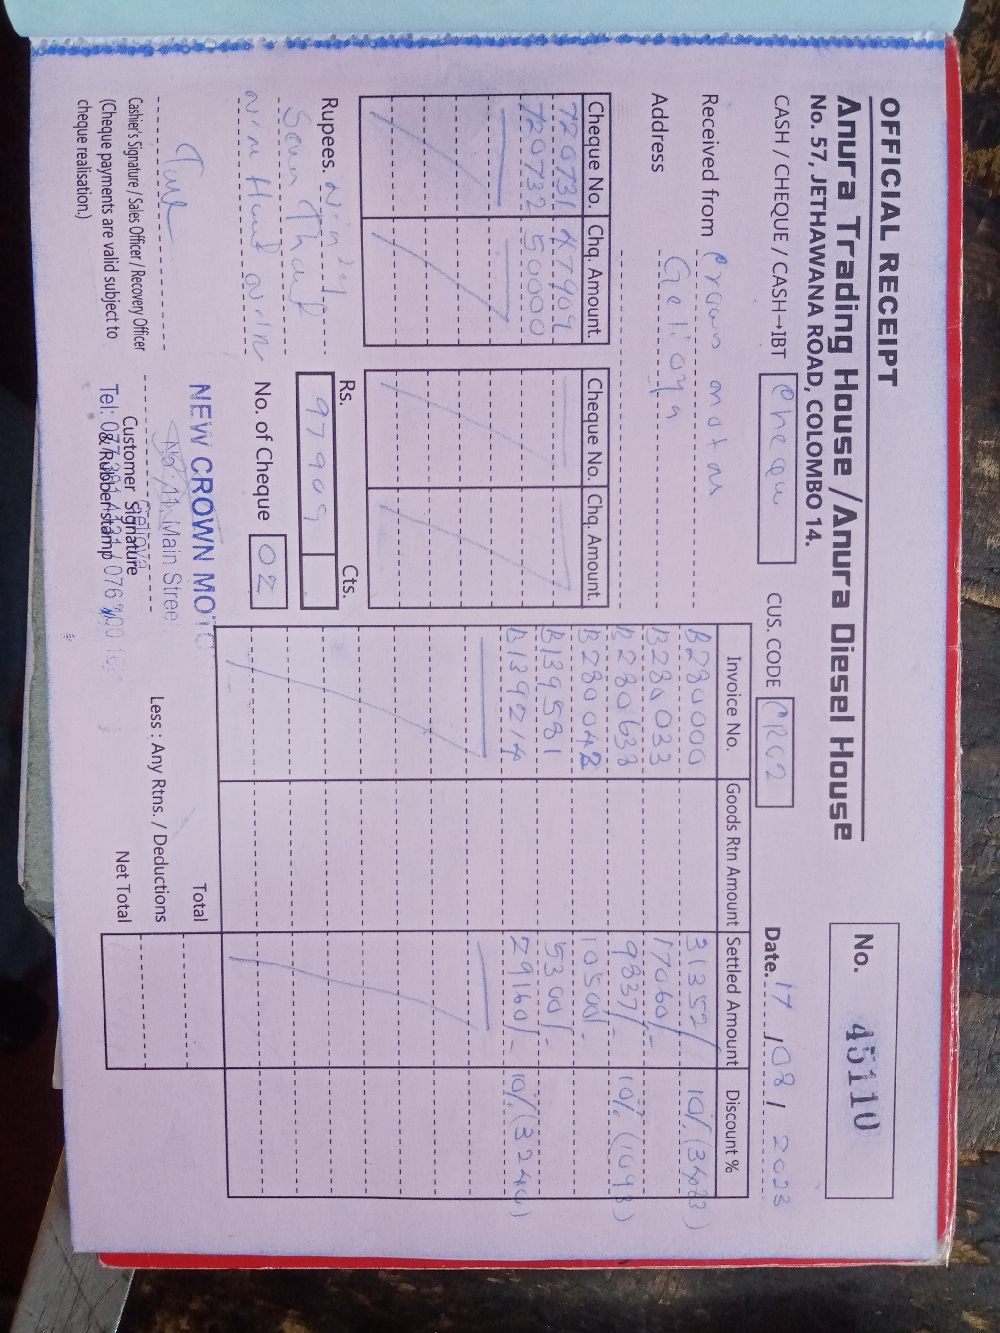 OFFICIAL RECEIPT
Anura Trading House / Anura Diesel House
No. 57, JETHAWANA ROAD, COLOMBO 14.
No. 45110
CASH / CHEQUE / CASH→IBT Cheque
CUS. CODE CRG2
Date. 17 / 08 / 2023
Received from Crown motors
Address Gelioya
Cheque No. Chq. Amount.
720731 47909
720732 50000
Cheque No. Chq. Amount.
Rupees. Ninty
Seven Thous
nine Hund nine
Rs. Cts.
97909
No. of Cheque 02
Invoice No. Goods Rtn Amount Settled Amount Discount %
B280000 31352/ 10% (3483)
B280033 17060/-
B280633 9837/- 10% (1093)
B280042 10500/-
B139581 5300/-
B139214 29160/- 10% (3240)
Total
Less : Any Rtns. / Deductions
Net Total
Cashier's Signature / Sales Officer / Recovery Officer
(Cheque payments are valid subject to
cheque realisation.)
NEW CROWN MOTO
No. 11 Main Stree
Gelioya
Customer Signature
& Rubber stamp
Tel: 077